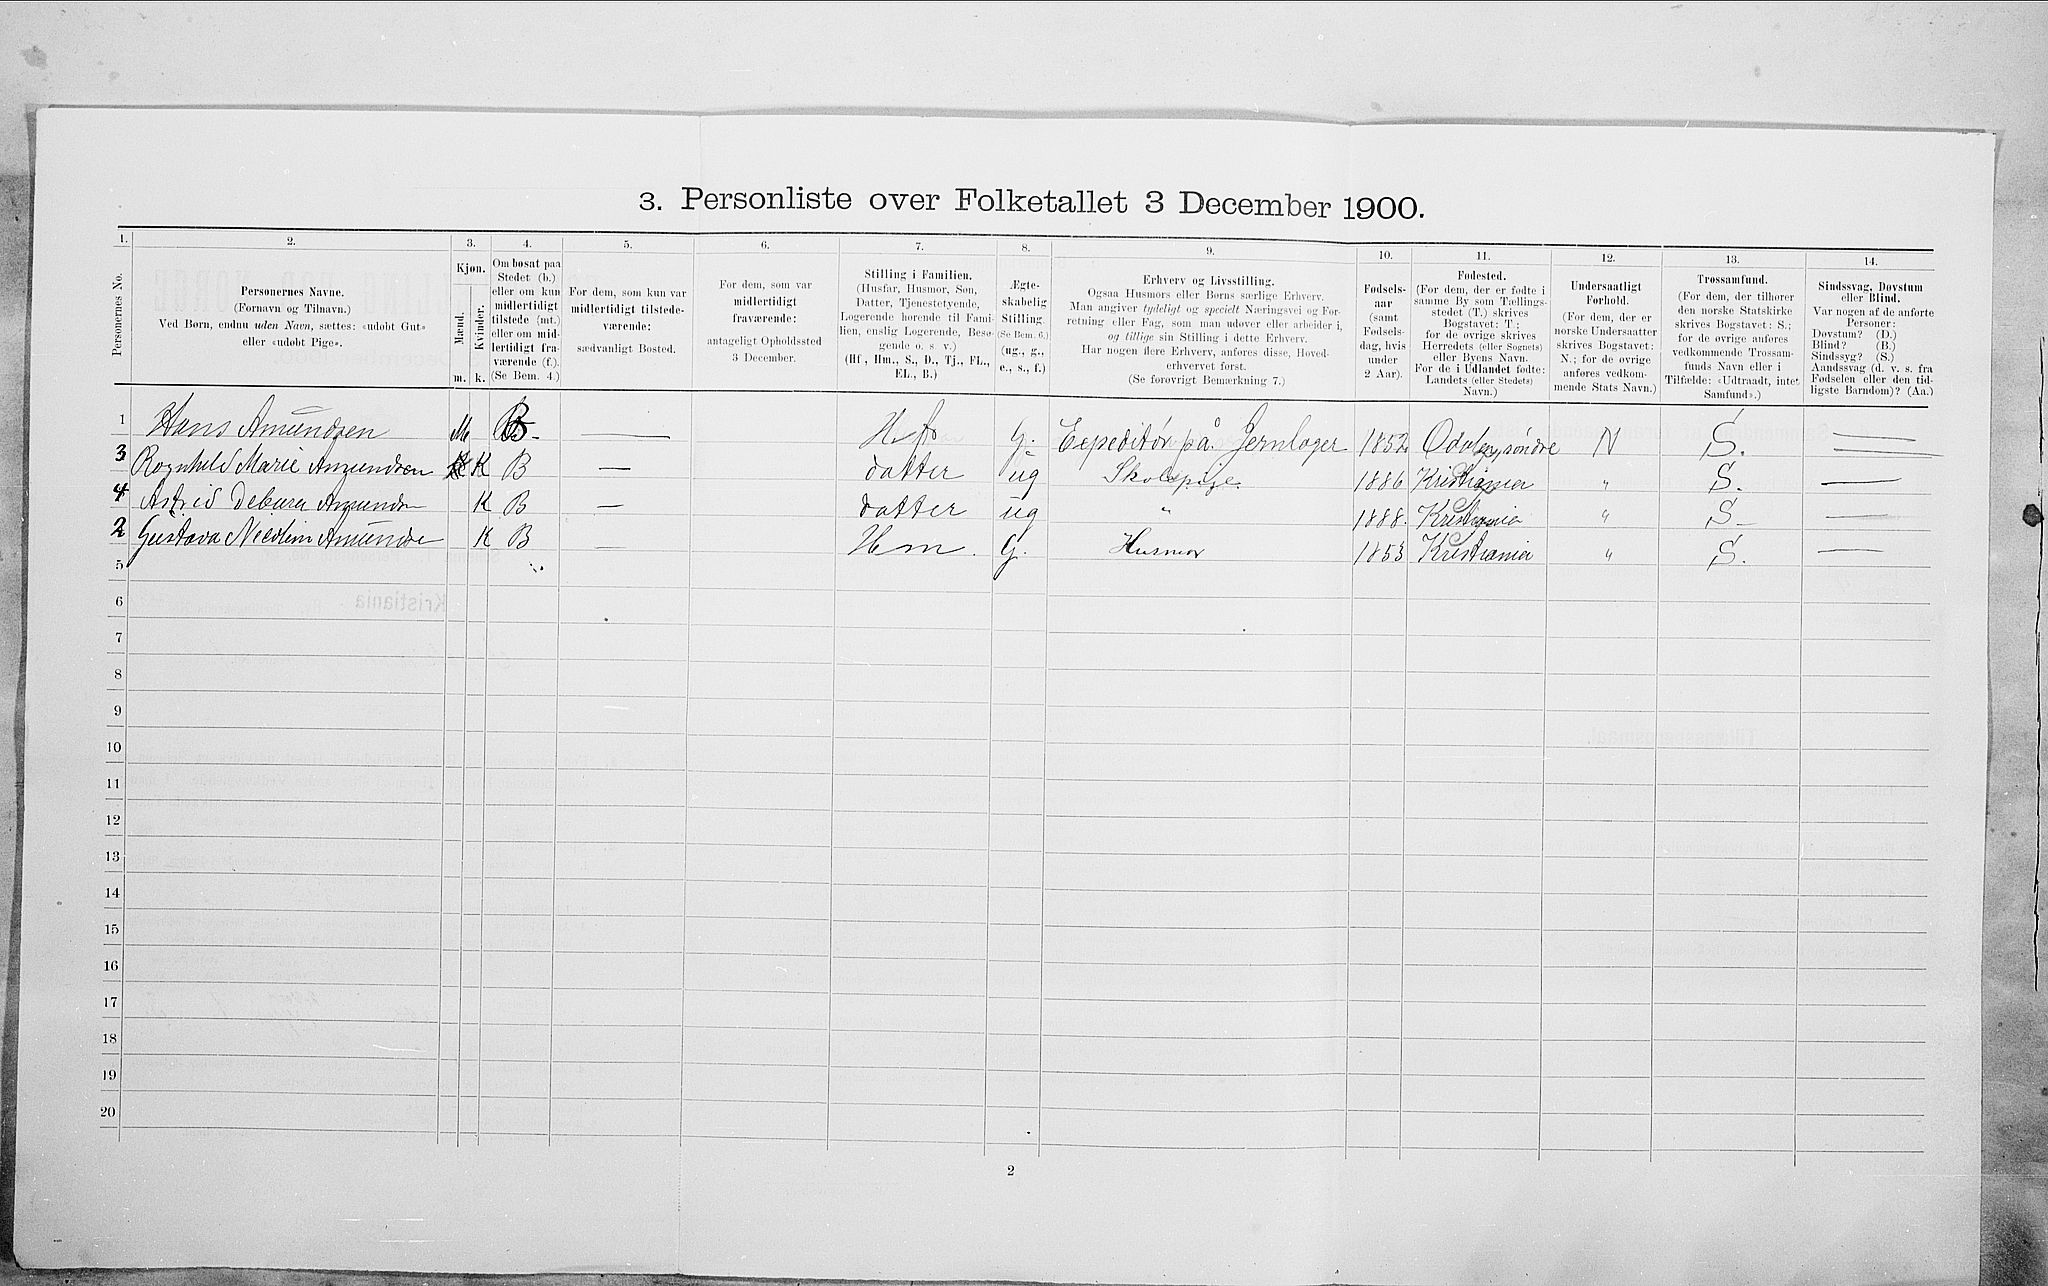 3. Personliste over Folketallet 3 December 1900.
1. 2. 3. 4. 5. 6. 7. 8. 9. 10. 11. 12. 13. 14.
Personernes No.
Personernes Navne.
(Fornavn og Tilnavn.)
Ved Børn, endnu uden Navn, sættes: «udøbt Gut»
eller «udøbt Pige».
Kjøn.
Mænd.
Kvinder.
m. k.
Om bosat paa
Stedet (b.)
eller om kun
midlertidigt
tilstede (mt.)
eller om mid-
lertidigt fra-
værende (f.).
(Se Bem. 4.)
For dem, som kun var
midlertidigt tilstede-
værende:
sædvanligt Bosted.
For dem, som var
midlertidigt
fraværende:
antageligt Opholdssted
3 December.
Stilling i Familien.
(Husfar, Husmor, Søn,
Datter, Tjenestetyende,
Logerende hørende til Fami-
lien, enslig Logerende, Besø-
gende o. s. v.)
(Hf., Hm., S., D., Tj., FL.,
EL., B.)
Ægte-
skabelig
Stilling.
(Se Bem. 6.)
(ug., g.,
e., s., f.)
Erhverv og Livsstilling.
Ogsaa Husmors eller Børns særlige Erhverv.
Man angiver tydeligt og specielt Næringsvei og For-
retning eller Fag, som man udøver eller arbeider i,
og tillige sin Stilling i dette Erhverv.
Har nogen flere Erhverv, anføres disse, Hoved-
erhvervet først.
(Se forøvrigt Bemærkning 7.)
Fødsels-
aar
(samt
Fødsels-
dag, hvis
under
2 Aar).
Fødested.
(For dem, der er fødte i
samme By som Tællings-
stedet (T.) skrives
Bogstavet: T.;
for de øvrige skrives
Herredets (eller Sognets)
eller Byens Navn.
For de i Udlandet fødte:
Landets (eller Stedets)
Navn.)
Undersaatligt
Forhold.
(For dem, der er
norske Undersaatter
skrives Bogstavet:
N.; for de øvrige
anføres vedkom-
mende Stats Navn.)
Trossamfund.
(For dem, der tilhører
den norske Statskirke
skrives Bogstavet: S.;
for de øvrige anføres
vedkommende Trossam-
funds Navn eller i
Tilfælde: «Udtraadt, intet
Samfund».)
Sindssvag, Døvstum
eller Blind.
Var nogen af de anførte
Personer:
Døvstum? (D.)
Blind? (B.)
Sindssyg? (S.)
Aandssvag (d. v. s. fra
Fødselen eller den tid-
ligste Barndom)? (Aa.)
1 Hans Amundsen M B — H.f G. Expeditør på Jernlager 1852 Odalen, søndre N S. —
3 Ragnhild Marie Amundsen K B — datter ug Skolepige. 1886 Kristiania " S. —
4 Astrid Debura Amundsn K B — datter ug " 1888. Kristiania " S —
2 Gustava Amundse K B — Hm. G. Husmor 1853 Kristiania " S. —
5
6
7
8
9
10
11
12
13
14
15
16
17
18
19
20
2